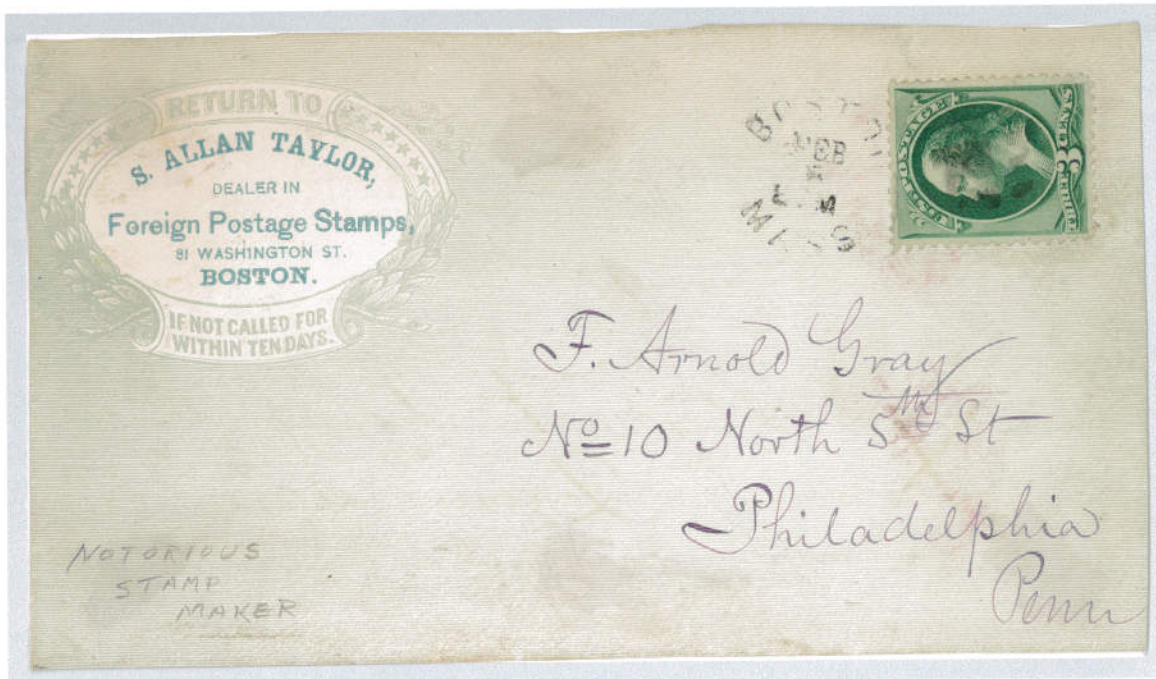 RETURN TO
S. ALLAN TAYLOR,
DEALER IN
Foreign Postage Stamps,
81 WASHINGTON ST.
BOSTON.
IF NOT CALLED FOR
WITHIN TEN DAYS.
FEB
U.S. POSTAGE
THREE 3 CENTS
F. Arnold Gray
No 10 North 5th St
Philadelphia
Penn
NOTORIOUS
STAMP
MAKER